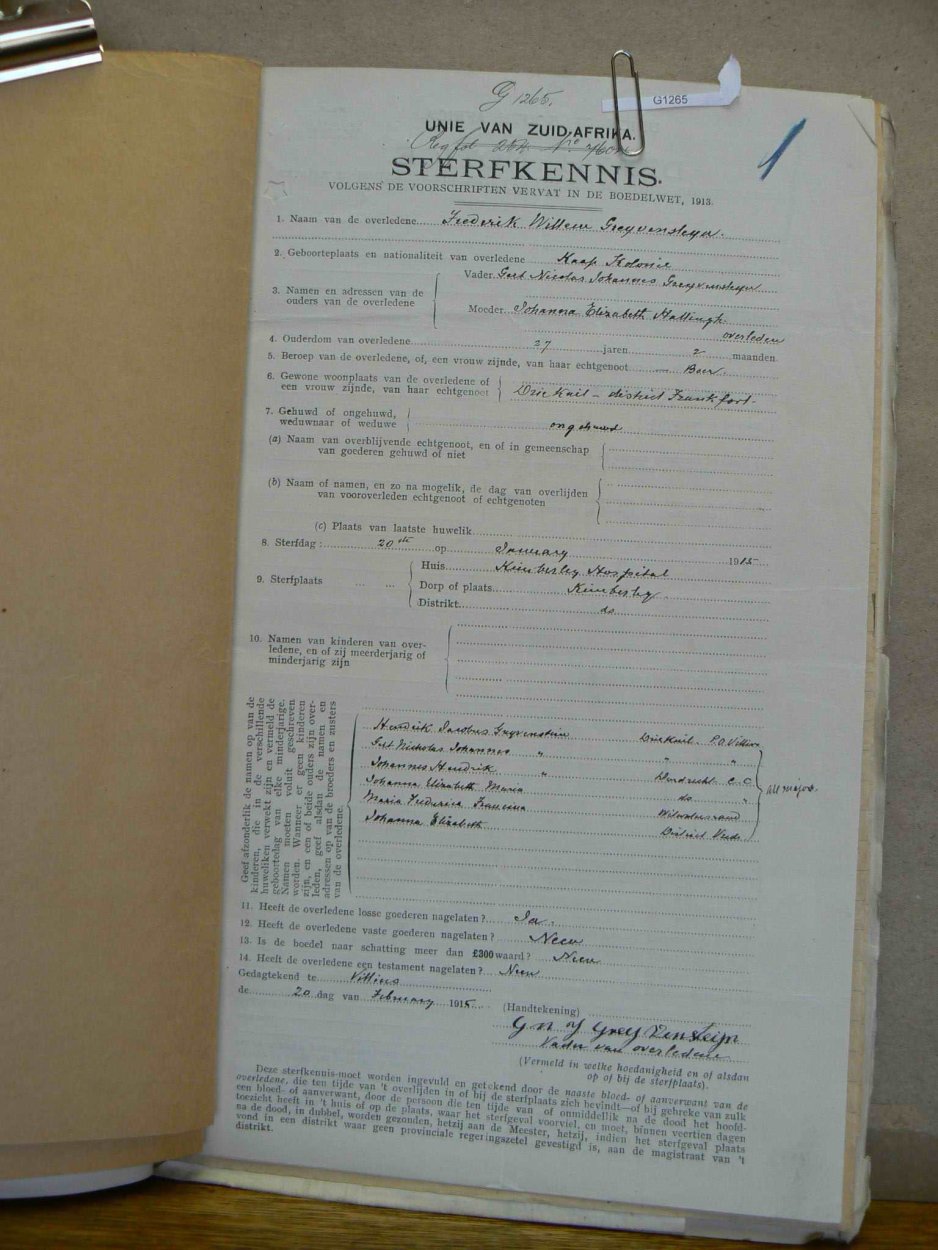 G 1265.
G1265
1
UNIE VAN ZUID-AFRIKA.
STERFKENNIS.
VOLGENS DE VOORSCHRIFTEN VERVAT IN DE BOEDELWET, 1913.
1. Naam van de overledene Frederik Willem Greyvensteyn.
2. Geboorteplaats en nationaliteit van overledene Kaap Kolonie
3. Namen en adressen van de ouders van de overledene
Vader Gert Nicolas Johannes Greyvensteyn
Moeder Johanna Elizabeth Hattingh
overleden
4. Ouderdom van overledene 27 jaren 2 maanden
5. Beroep van de overledene, of, een vrouw zijnde, van haar echtgenoot Boer.
6. Gewone woonplaats van de overledene of
een vrouw zijnde, van haar echtgenoot
Driekuil - district Frankfort.
7. Gehuwd of ongehuwd,
weduwnaar of weduwe
ongehuwd
(a) Naam van overblijvende echtgenoot, en of in gemeenschap
van goederen gehuwd of niet
(b) Naam of namen, en zo na mogelik, de dag van overlijden
van vooroverleden echtgenoot of echtgenoten
(c) Plaats van laatste huwelik
8. Sterfdag: 20ste op January 1915
9. Sterfplaats
Huis Kimberley Hospital
Dorp of plaats Kimberley
Distrikt do
10. Namen van kinderen van over-
ledene, en of zij meerderjarig of
minderjarig zijn
Geef afzonderlik de namen op van de
kinderen, die in de verschillende
huweliken verwekt zijn en vermeld de
geboortedag van elke minderjarige.
Namen moeten voluit geschreven
worden. Wanneer er geen kinderen
zijn, en een of beide ouders zijn over-
leden, geef alsdan de namen en
adressen op van de broeders en zusters
van de overledene.
Hendrik Jacobus Greyvenstein Driekuil P.O. Villiers
Gert Nicholas Johannes " " "
Johannes Hendrik " Dordrecht C.C.
Johanna Elizabeth Maria do "
Maria Frederica Francina Witwatersrand
Johanna Elizabeth District Vrede
all major.
11. Heeft de overledene losse goederen nagelaten? Ja.
12. Heeft de overledene vaste goederen nagelaten? Neen
13. Is de boedel naar schatting meer dan £300 waard? Neen
14. Heeft de overledene een testament nagelaten? Neen
Gedagtekend te Villiers
de 20 dag van February 1915
(Handtekening)
G N J Greyvensteijn
Vader van overledene
(Vermeld in welke hoedanigheid en of alsdan
op of bij de sterfplaats).
Deze sterfkennis moet worden ingevuld en getekend door de naaste bloed- of aanverwant van de
overledene, die ten tijde van 't overlijden in of bij de sterfplaats zich bevindt—of bij gebreke van zulk
een bloed- of aanverwant, door de persoon die ten tijde van of onmiddellik na de dood het hoofd-
toezicht heeft in 't huis of op de plaats, waar het sterfgeval voorviel, en moet, binnen veertien dagen
na de dood, in dubbel, worden gezonden, hetzij aan de Meester, hetzij, indien het sterfgeval plaats
vond in een distrikt waar geen provinciale regeringszetel gevestigd is, aan de magistraat van 't
distrikt.